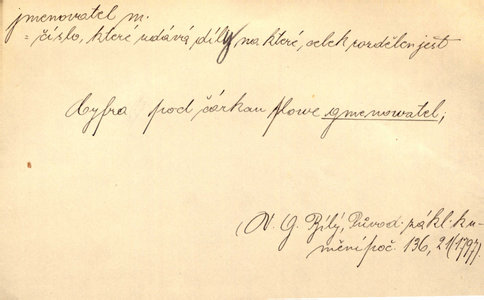 jmenovatel m.
= číslo, které udává díly, na které, celek rozdělen jest
Cyfra pod čárkau slowe gmenowatel,
N. G. Bílý, Důvod. zákl. ku-
mění poč. 136, 21 (1797).